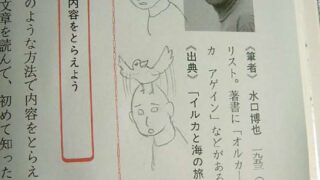 《筆者》 水口博也 一九五三(
リスト。著書に「オルカ
カ アゲイン」などがある
《出典》 「イルカと海の旅
内容をとらえよう
のような方法で内容をとらえ
文章を読んで、初めて知った